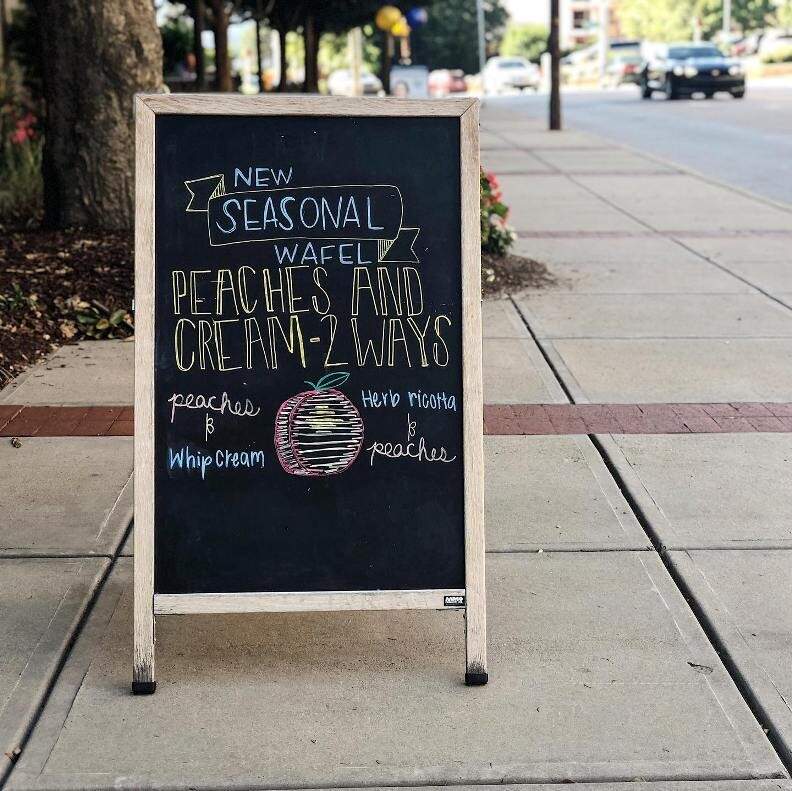 NEW
SEASONAL
WAFEL
PEACHES AND
CREAM-2 WAYS
peaches
&
Whip Cream
Herb ricotta
&
peaches